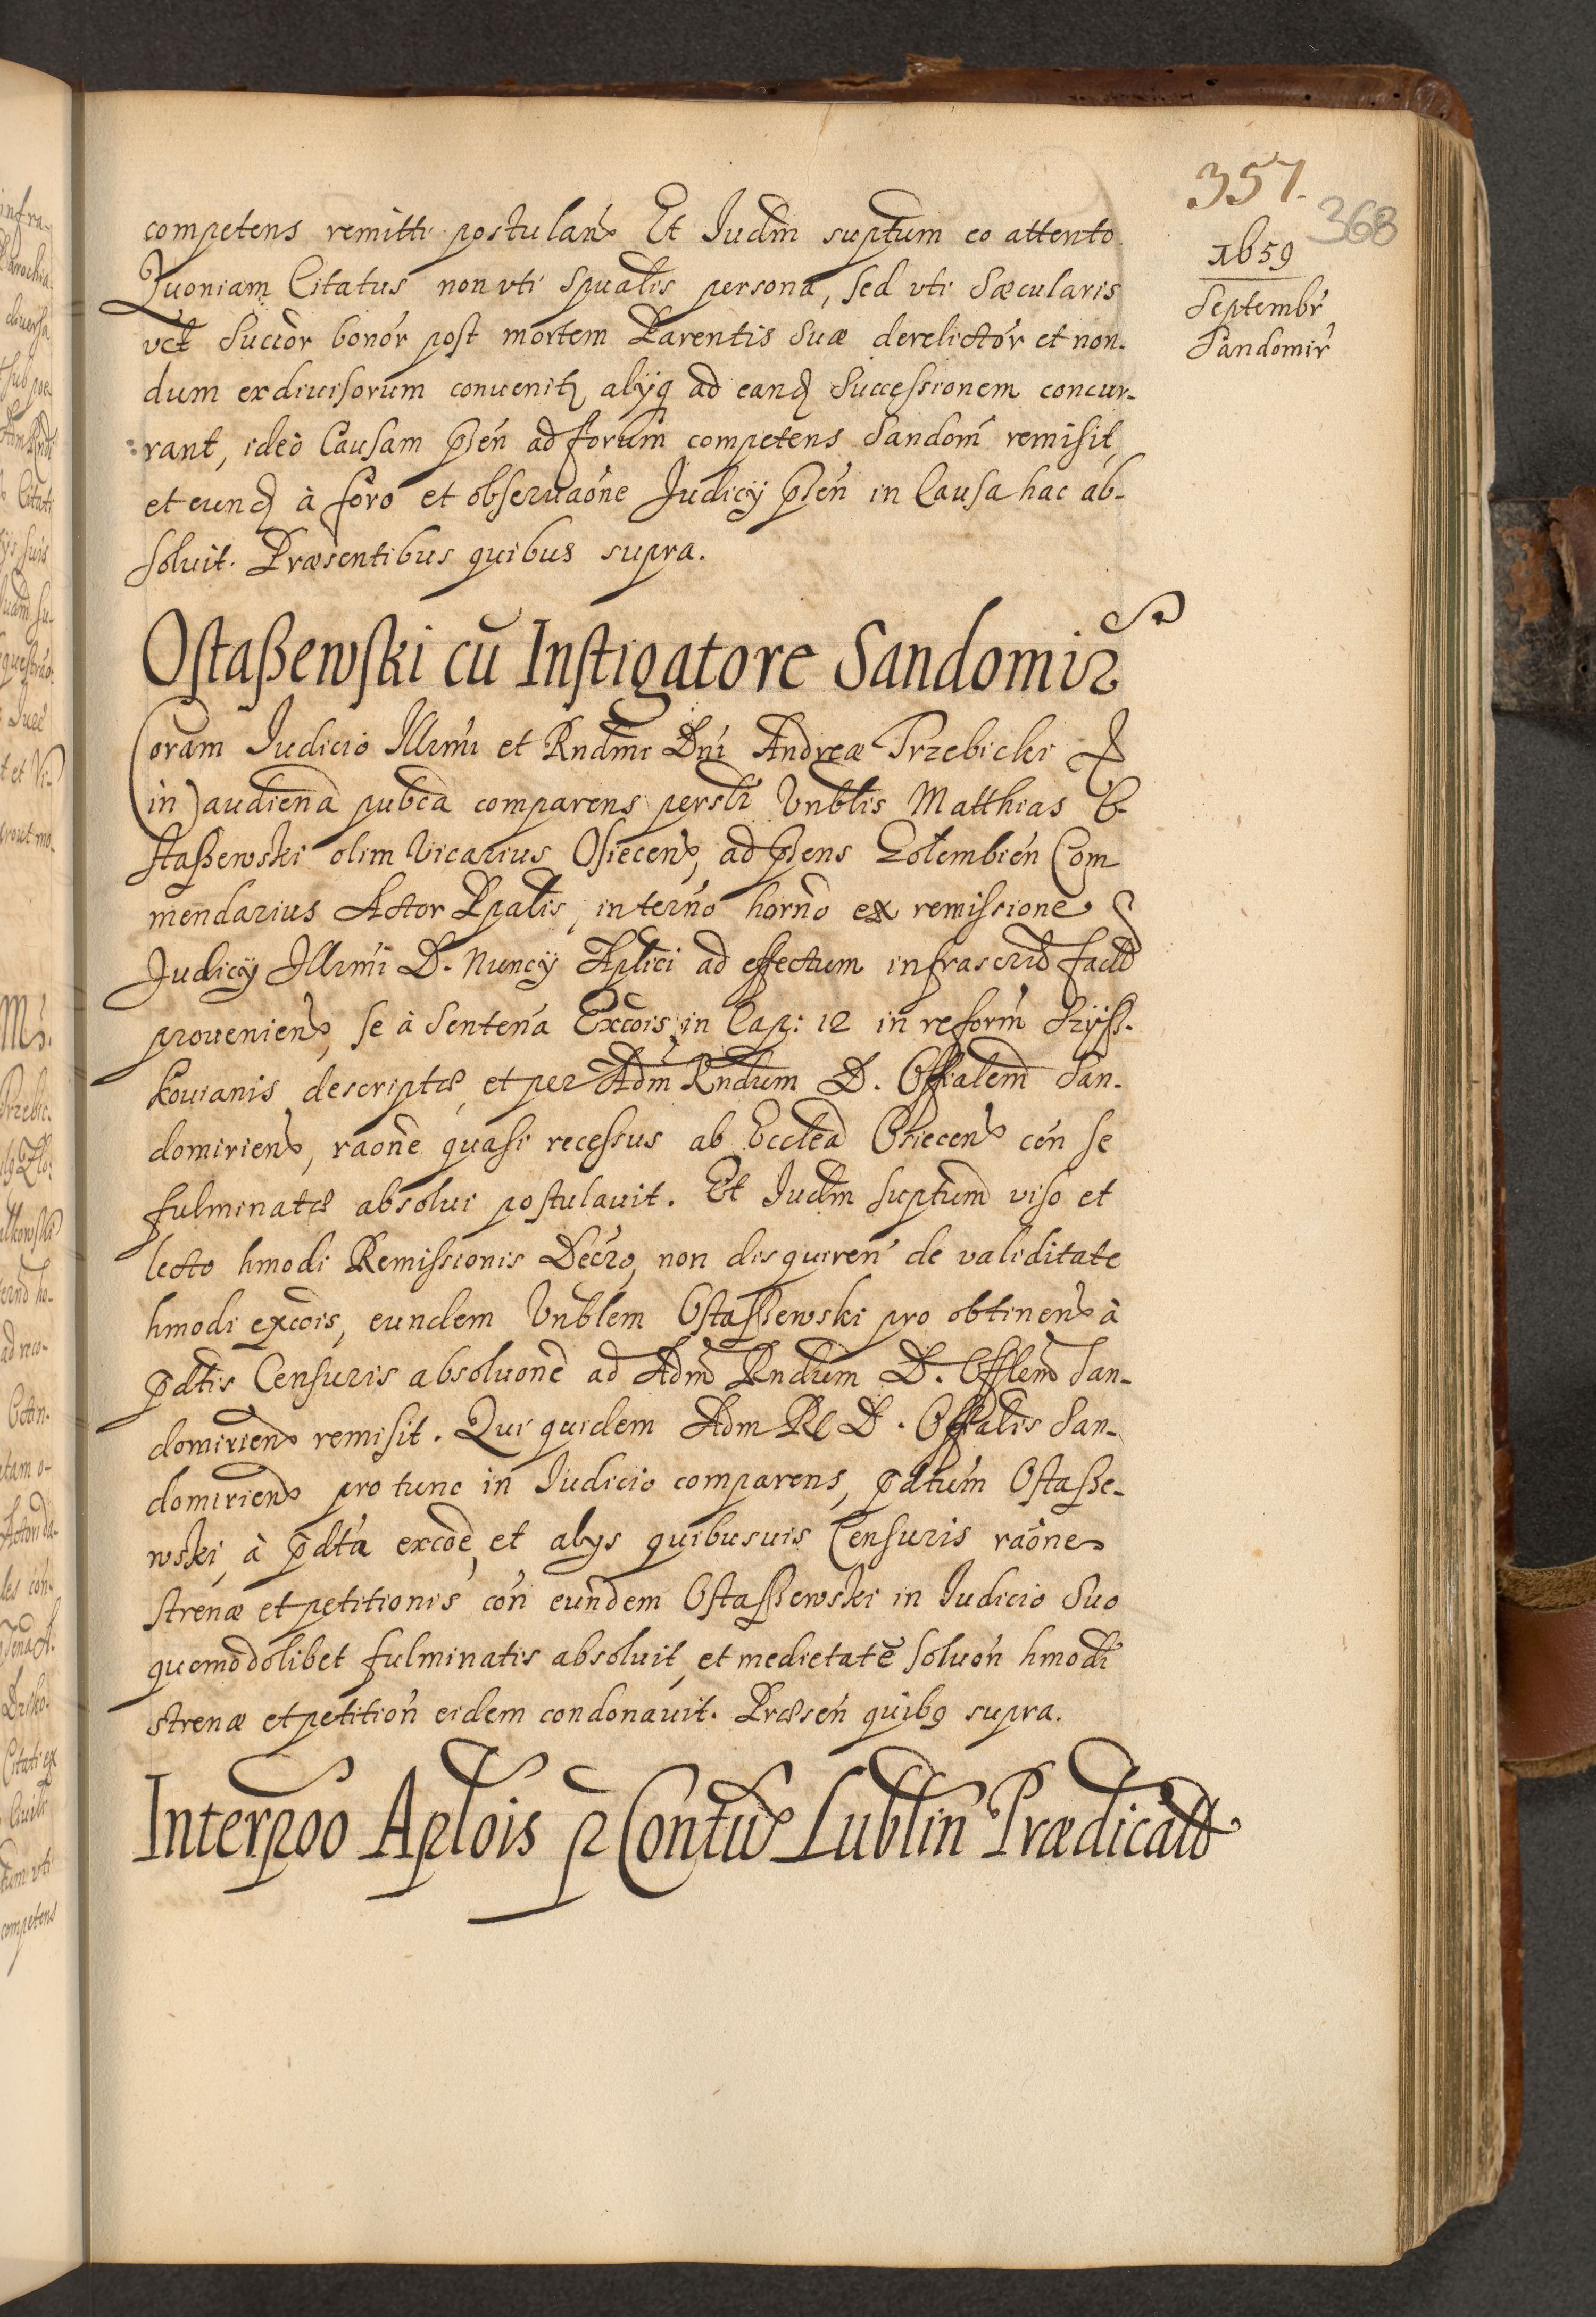 357.
368
1659
Septembr
Sandomir
competens remitti postulan Et Iudm suptum eo attento
Quoniam Citatus non vti Spualis persona, sed vti Sæcularis
vct Succor bonor post mortem Parentis Suæ derelictor et non-
dum exdiuisorum conuenit, alijq ad eand Successionem concur-
rant, ideo Causam psen ad forum competens Sandom remisit,
et eund à foro et obseruaone Judicij psen in Causa hac ab-
soluit. Præsentibus quibus supra.
Ostaßewski cū Instigatore Sandomir
Coram Iudicio Illrmi et Rndmi Dni Andreæ Trzebicki &
in audiena pubca comparens persli Vnblis Matthias O-
staßewski olim Vicarius Osiecen, ad psens Golembien Com
mendarius Actor Ppalis, in terno horno ex remissione
Judicij Illrmi D. Nuncij Aplici ad effectum infrascrid facta
prouenien, se à Sentena Excois in Cap: 12 in reform Szyß-
kouianis descriptæ, et per Adm Rndum D. Offialem San-
domirien, raone quasi recessus ab Ecclea Osiecen con se
fulminatæ absolui postulauit. Et Iudm suptum viso et
lecto hmodi Remissionis Decro, non disquiren de validitate
hmodi excois, eundem Vnblem Ostaßewski pro obtinen à
pdtis Censuris absoluone ad Adm Rndum D. Offlem San-
domirien remisit. Qui quidem Adm R D. Offialis San-
domirien pro tunc in Iudicio comparens, pdtum Ostaße-
wski, à pdta excoe, et alys quibusuis Censuris raone
strenæ et petitionis con eundem Ostaßewski in Iudicio Suo
quomodolibet fulminatis absoluit, et medietatē soluon hmodi
strenæ et petition eidem condonauit. Præsen quibq supra.
Interpoo Aplois p Contu Lublin Prædicat